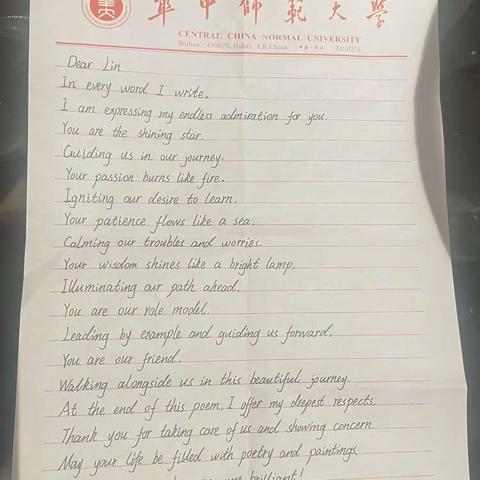 華中師範大學
CENTRAL CHINA NORMAL UNIVERSITY
Wuhan 430079, Hubei, P.R.China 中国·武汉 Tel(027)
Dear Lin
In every word I write.
I am expressing my endless admiration for you.
You are the shining star.
Guiding us in our journey.
Your passion burns like fire.
Igniting our desire to learn.
Your patience flows like a sea.
Calming our troubles and worries.
Your wisdom shines like a bright lamp.
Illuminating our path ahead.
You are our role model.
Leading by example and guiding us forward.
You are our friend.
Walking alongside us in this beautiful journey.
At the end of this poem, I offer my deepest respects.
Thank you for taking care of us and showing concern.
May your life be filled with poetry and paintings.
more brilliant!